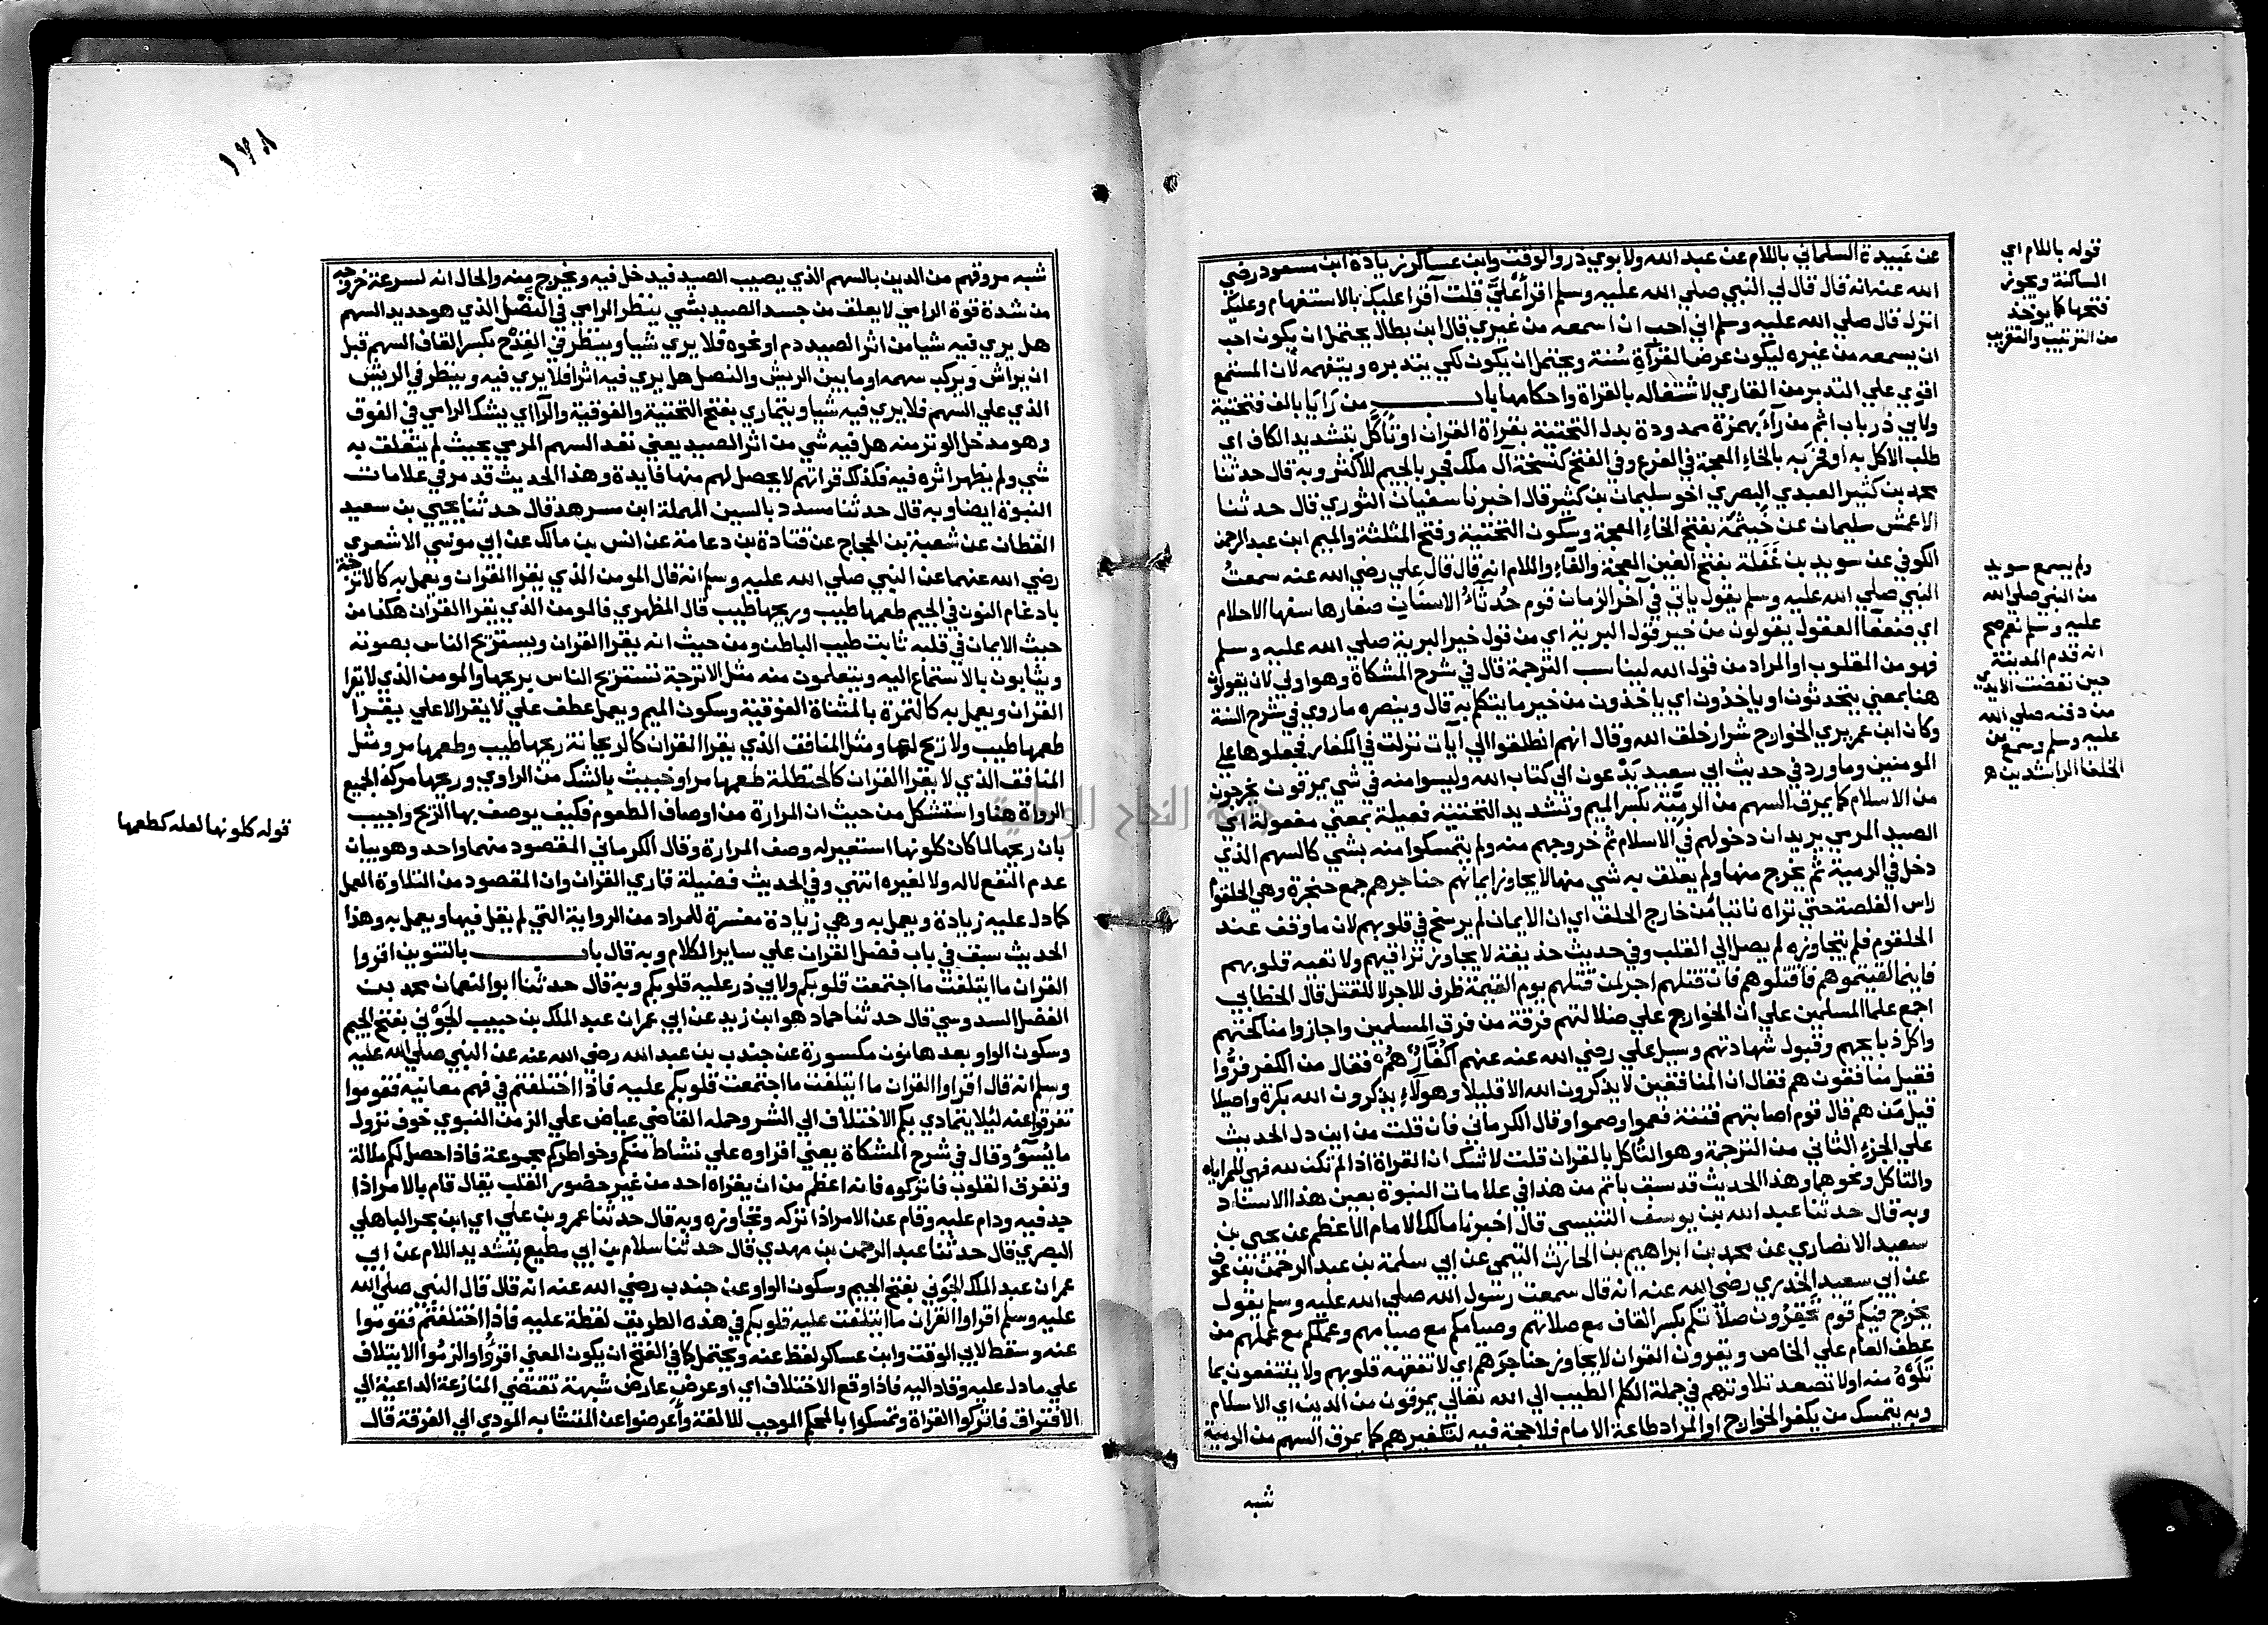 عن عَبيدة السلماني باللام عن عبد الله ولابوي ذر والوقت وابن عساكر زيادة ابن مسعود رضي
الله عنه انه قال قال لي النبي صلي الله عليه وسلم اقرأ عَلَيَّ قلت آقرا عليك بالاستفهام وعليك
انزل قال صلي الله عليه وسلم اني احب ان اسمعه من غيري قال ابن بطال يحتمل ان يكون احب
ان يسمعه من غيره ليكون عرض القرآة سُنة ويحتمل ان يكون لكي يتدبره ويتفهمه لان المستمع
اقوي علي التدبر من القاري لاشتغاله بالقراة واحكامها باب من رَايَا بالف فتحتية
ولابي ذر باب اثم من رآءَ بهمزة ممدودة بدل التحتية بقراة القران او تَأكَّل بتشديد الكاف اي
طلب الاكل به او فخر به بالخاء المعجمة في الفرع وفي الفتح كنسخة آل ملك فجر بالجيم للاكثر وبه قال حدثنا
محمد بن كثير العبدي البصري اخو سليمان بن كثير قال اخبرنا سفيان الثوري قال حدثنا
الاعمش سليمان عن خَيثمَة بفتح الخاء المعجمة وسكون التحتية وفتح المثلثة والميم ابن عبد الرحمن
الكوفي عن سويد بن غَفَلة بفتح الغين المعجمة والفآء واللام انه قال قال علي رضي الله عنه سمعتُ
النبي صلي الله عليه وسلم يقول ياتي في آخر الزمان قوم حُدَثآءُ الاسنان صغارها سفها الاحلام
اي ضعفآ العقول يقولون من خير قول البرية اي من قول خير البرية صلي الله عليه وسلم
فهو من المقلوب او المراد من قول الله ليناسب الترجمة قال في شرح المشكاة وهو اولي لان يقولون
هنا بمعني يتحدثون او ياخذون اي ياخذون من خير ما يتكلم به قال وينصره ما روي في شرح السنة
وكان ابن عمر يري الخوارج شرار خلق الله وقال انهم انطلقوا الي آيات نزلت في الكفار فجعلوها علي
المومنين وما ورد في حديث ابي سعيد يَدْعون الي كتاب الله وليسوا منه في شي يمرقون يخرجون
من الاسلام كما يمرق السهم من الرميَّة بكسر الميم وتشديد التحتية فعيلة بمعني مفعولة اي
الصيد المرمي يريد ان دخولهم في الاسلام ثم خروجهم منه ولم يتمسكوا منه بشي كالسهم الذي
دخل في الرمية ثم يخرج منها ولم يعلق به شي منها لا يجاوز ايمانهم حناجرهم جمع حنجرة وهي الحلقوم
راس الغلصة حتي تراه ناتيا من خارج الحلق اي ان الايمان لم يرسخ في قلوبهم لان ما وقف عند
الحلقوم فلم يتجاوزه لم يصل الي القلب وفي حديث حذيفة لا يجاوز تراقيهم ولا تعيه قلوبهم
فاينما لقيتموهم فاقتلوهم فان قتلهم اجر لمن قتلهم يوم القيمة ظرف للاجر لا للقتل قال الخطابي
اجمع علما المسلمين علي ان الخوارج علي ضلالتهم فرقة من فرق المسلمين واجازوا مناكحتهم
واكل ذبايحهم وقبول شهادتهم وسيل علي رضي الله عنه عنهم أكُفَّارٌ هُمْ فقال من الكفر فرُّوا
فقيل منافقون هم فقال ان المنافقين لا يذكرون الله الا قليلا وهولاَءِ يذكرون الله بكرة واصيلا
قيل مَن هم قال قوم اصابتهم فتنة فعموا وصموا وقال الكرماني فان قلت من اين دل الحديث
علي الجزء الثاني من الترجمة وهو التأكل بالقران قلت لا شك ان القراة اذا لم تكن لله فهي للمراياه
والتاكل ونحوهما وهذا الحديث قد سبق باتم من هذا في علامات النبوة بعين هذا الاسناد
وبه قال حدثنا عبد الله بن يوسف التنيسي قال اخبرنا مالك الامام الاعظم عن يحيي بن
سعيد الانصاري عن محمد بن ابراهيم بن الحارث التيمي عن ابي سلمة بن عبد الرحمن بن عوف
عن ابي سعيد الخدري رضي الله عنه انه قال سمعت رسول الله صلي الله عليه وسلم يقول
يخرج فيكم قوم تحْقِرُون صلاتكم بكسر القاف مع صلاتهم وصيامكم مع صيامهم وعملكم مع عملهم من
عطف العام علي الخاص ويقرون القران لا يجاوز حناجرَهم اي لا تفقهه قلوبهم ولا ينتفعون بما
تَلَوْهُ منه اولا تصعد تلاوتهم في جملة الكلم الطيب الي الله تعالي يمرقون من الدين اي الاسلام
وبه يتمسك من يكفر الخوارج او المراد طاعة الامام فلا حجة فيه لتكفيرهم كما يمرق السهم من الرمية
شبه
قوله باللام اي
الساكنة ويجوز
فتحها كما يوخذ
من الترتيب والتقريب
ولم يسمع سويد
من النبي صلي الله
عليه وسلم نعم صح
انه قدم المدينة
حين نفضت الايدي
من دفنه صلي الله
عليه وسلم وسمع من
الخلفا الراشدين ه
١٧٨
شبه مروقهم من الدين بالسهم الذي يصيب الصيد فيدخل فيه ويخرج منه والحال انه لسرعة خروجه
من شدة قوة الرامي لا يعلق من جسد الصيد بشي ينظر الرامي في النصل الذي هو حديد السهم
هل يري فيه شيا من اثر الصيد دم او نحوه فلا يري شيا وينظر في القِدْح بكسر القاف السهم قبل
ان يراش ويركب سهمه او ما بين الريش والنصل هل يري فيه اثرا فلا يري فيه وينظر في الريش
الذي علي السهم فلا يري فيه شيا ويتماري بفتح التحتية والفوقية والرآ اي يشك الرامي في الفوق
وهو مدخل الوتر منه هل فيه شي من اثر الصيد يعني نفذ السهم المرمي بحيث لم يتعلق به
شي ولم يظهر اثره فيه فكذلك قراتهم لا يحصل لهم منها فايدة وهذا الحديث قد مر في علامات
النبوة ايضا وبه قال حدثنا مسدد بالسين المهملة ابن مسرهد قال حدثنا يحيي بن سعيد
القطان عن شعبة بن الحجاج عن قتادة بن دعامة عن انس بن مالك عن ابي موسي الاشعري
رضي الله عنهما عن النبي صلي الله عليه وسلم انه قال المومن الذي يقرا القران ويعمل به كالاترجة
بادغام النون في الجيم طعمها طيب وريحها طيب قال المظهري فالمومن الذي يقرا القران هكذا من
حيث الايمان في قلبه ثابت طيب الباطن ومن حيث انه يقرا القران ويستريح الناس بصوته
ويثابون بالاستماع اليه ويتعلمون منه مثل الاترجة تستريح الناس بريحها والمومن الذي لا يقرا
القران ويعمل به كالتمرة بالمثناة الفوقية وسكون الميم ويعمل عطف علي لا يقرا لا علي يقرا
طعمها طيب ولا ريح لها ومثل المنافق الذي يقرا القران كالريحانة ريحها طيب وطعمها مر ومثل
المنافق الذي لا يقرا القران كالحنظلة طعمها مر او خبيث بالشك من الراوي وريحها مر كذا لجميع
الرواة هنا واستشكل من حيث ان المرارة من اوصاف الطعوم فكيف يوصف بها الريح واجيب
بان ريحها لما كان كلونها استعير له وصف المرارة وقال الكرماني المقصود منهما واحد وهو بيان
عدم النفع لا له ولا لغيره انتهي وفي الحديث فضيلة قاري القران وان المقصود من التلاوة العمل
كما دل عليه زيادة ويعمل به وهي زيادة مفسرة للمراد من الرواية التي لم يقل فيها ويعمل به وهذا
الحديث سبق في باب فضل القران علي ساير الكلام وبه قال باب بالتنوين اقروا
القران ما ايتلفت ما اجتمعت قلوبكم ولابي ذر عليه قلوبكم وبه قال حدثنا ابو النعمان محمد بن
الفضل السدوسي قال حدثنا حماد هو ابن زيد عن ابي عمران عبد الملك بن حبيب الجَوْني بفتح الجيم
وسكون الواو بعدها نون مكسورة عن جندب بن عبد الله رضي الله عنه عن النبي صلي الله عليه
وسلم انه قال اقراوا القران ما ايتلفت ما اجتمعت قلوبكم عليه فاذا اختلفتم في فهم معانيه فقوموا
تفرقوا عنه ليلا يتمادي بكم الاختلاف الي الشر وحمله القاضي عياض علي الزمن النبوي خوف نزول
ما يُسَوُؤ وقال في شرح المشكاة يعني اقراوه علي نشاط منكم وخواطركم مجموعة فاذا حصل لكم ملالة
وتفرق القلوب فاتركوه فانه اعظم من ان يقراه احد من غير حضور القلب يقال قام بالامر اذا
جد فيه ودام عليه وقام عن الامر اذا تركه وتجاوزه وبه قال حدثنا عمرو بن علي اي ابن بحر الباهلي
البصري قال حدثنا عبد الرحمن بن مهدي قال حدثنا سلام بن ابي مطيع بتشديد اللام عن ابي
عمران عبد الملك الجَوْني بفتح الجيم وسكون الواو عن جندب رضي الله عنه انه قال قال النبي صلي الله
عليه وسلم اقراوا القران ما ايتلفت عليه قلوبكم في هذه الطريق لفظة عليه فاذا اختلفتم فقوموا
عنه وسقط لابي الوقت وابن عساكر لفظ عنه ويحتمل كما في الفتح ان يكون المعني اقرؤا والزموا الايتلاف
علي ما دل عليه وقاد اليه فاذا وقع الاختلاف اي او عرض عارض شبهة تقتضي المنازعة الداعية الي
الافتراق فاتركوا القراة وتمسكوا بالمحكم الموجب للالفة وأعرضوا عن المتشابه المودي الي الفرقة قال
قوله كلونها لعله كطعمها
جامعة النجاح الوطنية